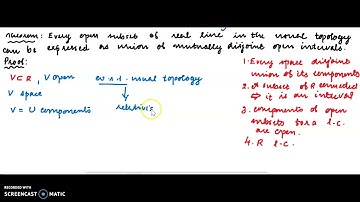 Theorem: Every open subset of real line in the usual topology
can be expressed as union of mutually disjoint open intervals.
Proof:
V⊂R, V open w.r.t. usual topology
V space
relative
V = U components
1. Every space disjoint
union of its components
2. A subset of R connected
⇔ it is an interval
3. components of open
subsets for a l.c.
are open.
4. R l.c.
RECORDED WITH
SCREENCAST MATIC